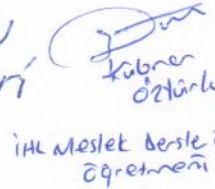 Kübner
Öztürk
İHL Meslek Dersle
öğretmeni